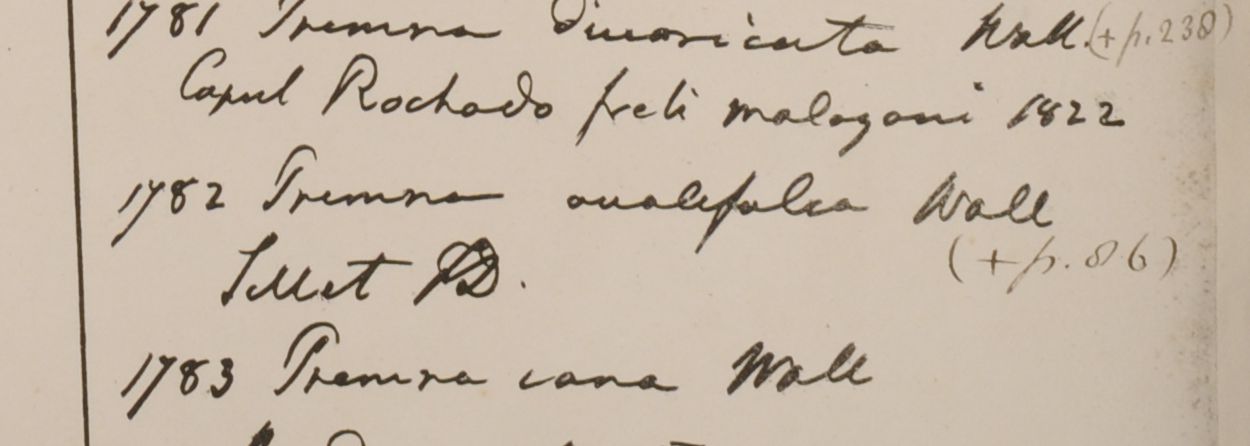 1781 Premna divaricata Wall. (+ p. 238)
Caput Rochado freti malayani 1822
1782 Premna ovalifolia Wall
(+ p. 86)
Sillet FD.
1783 Premna cana Wall